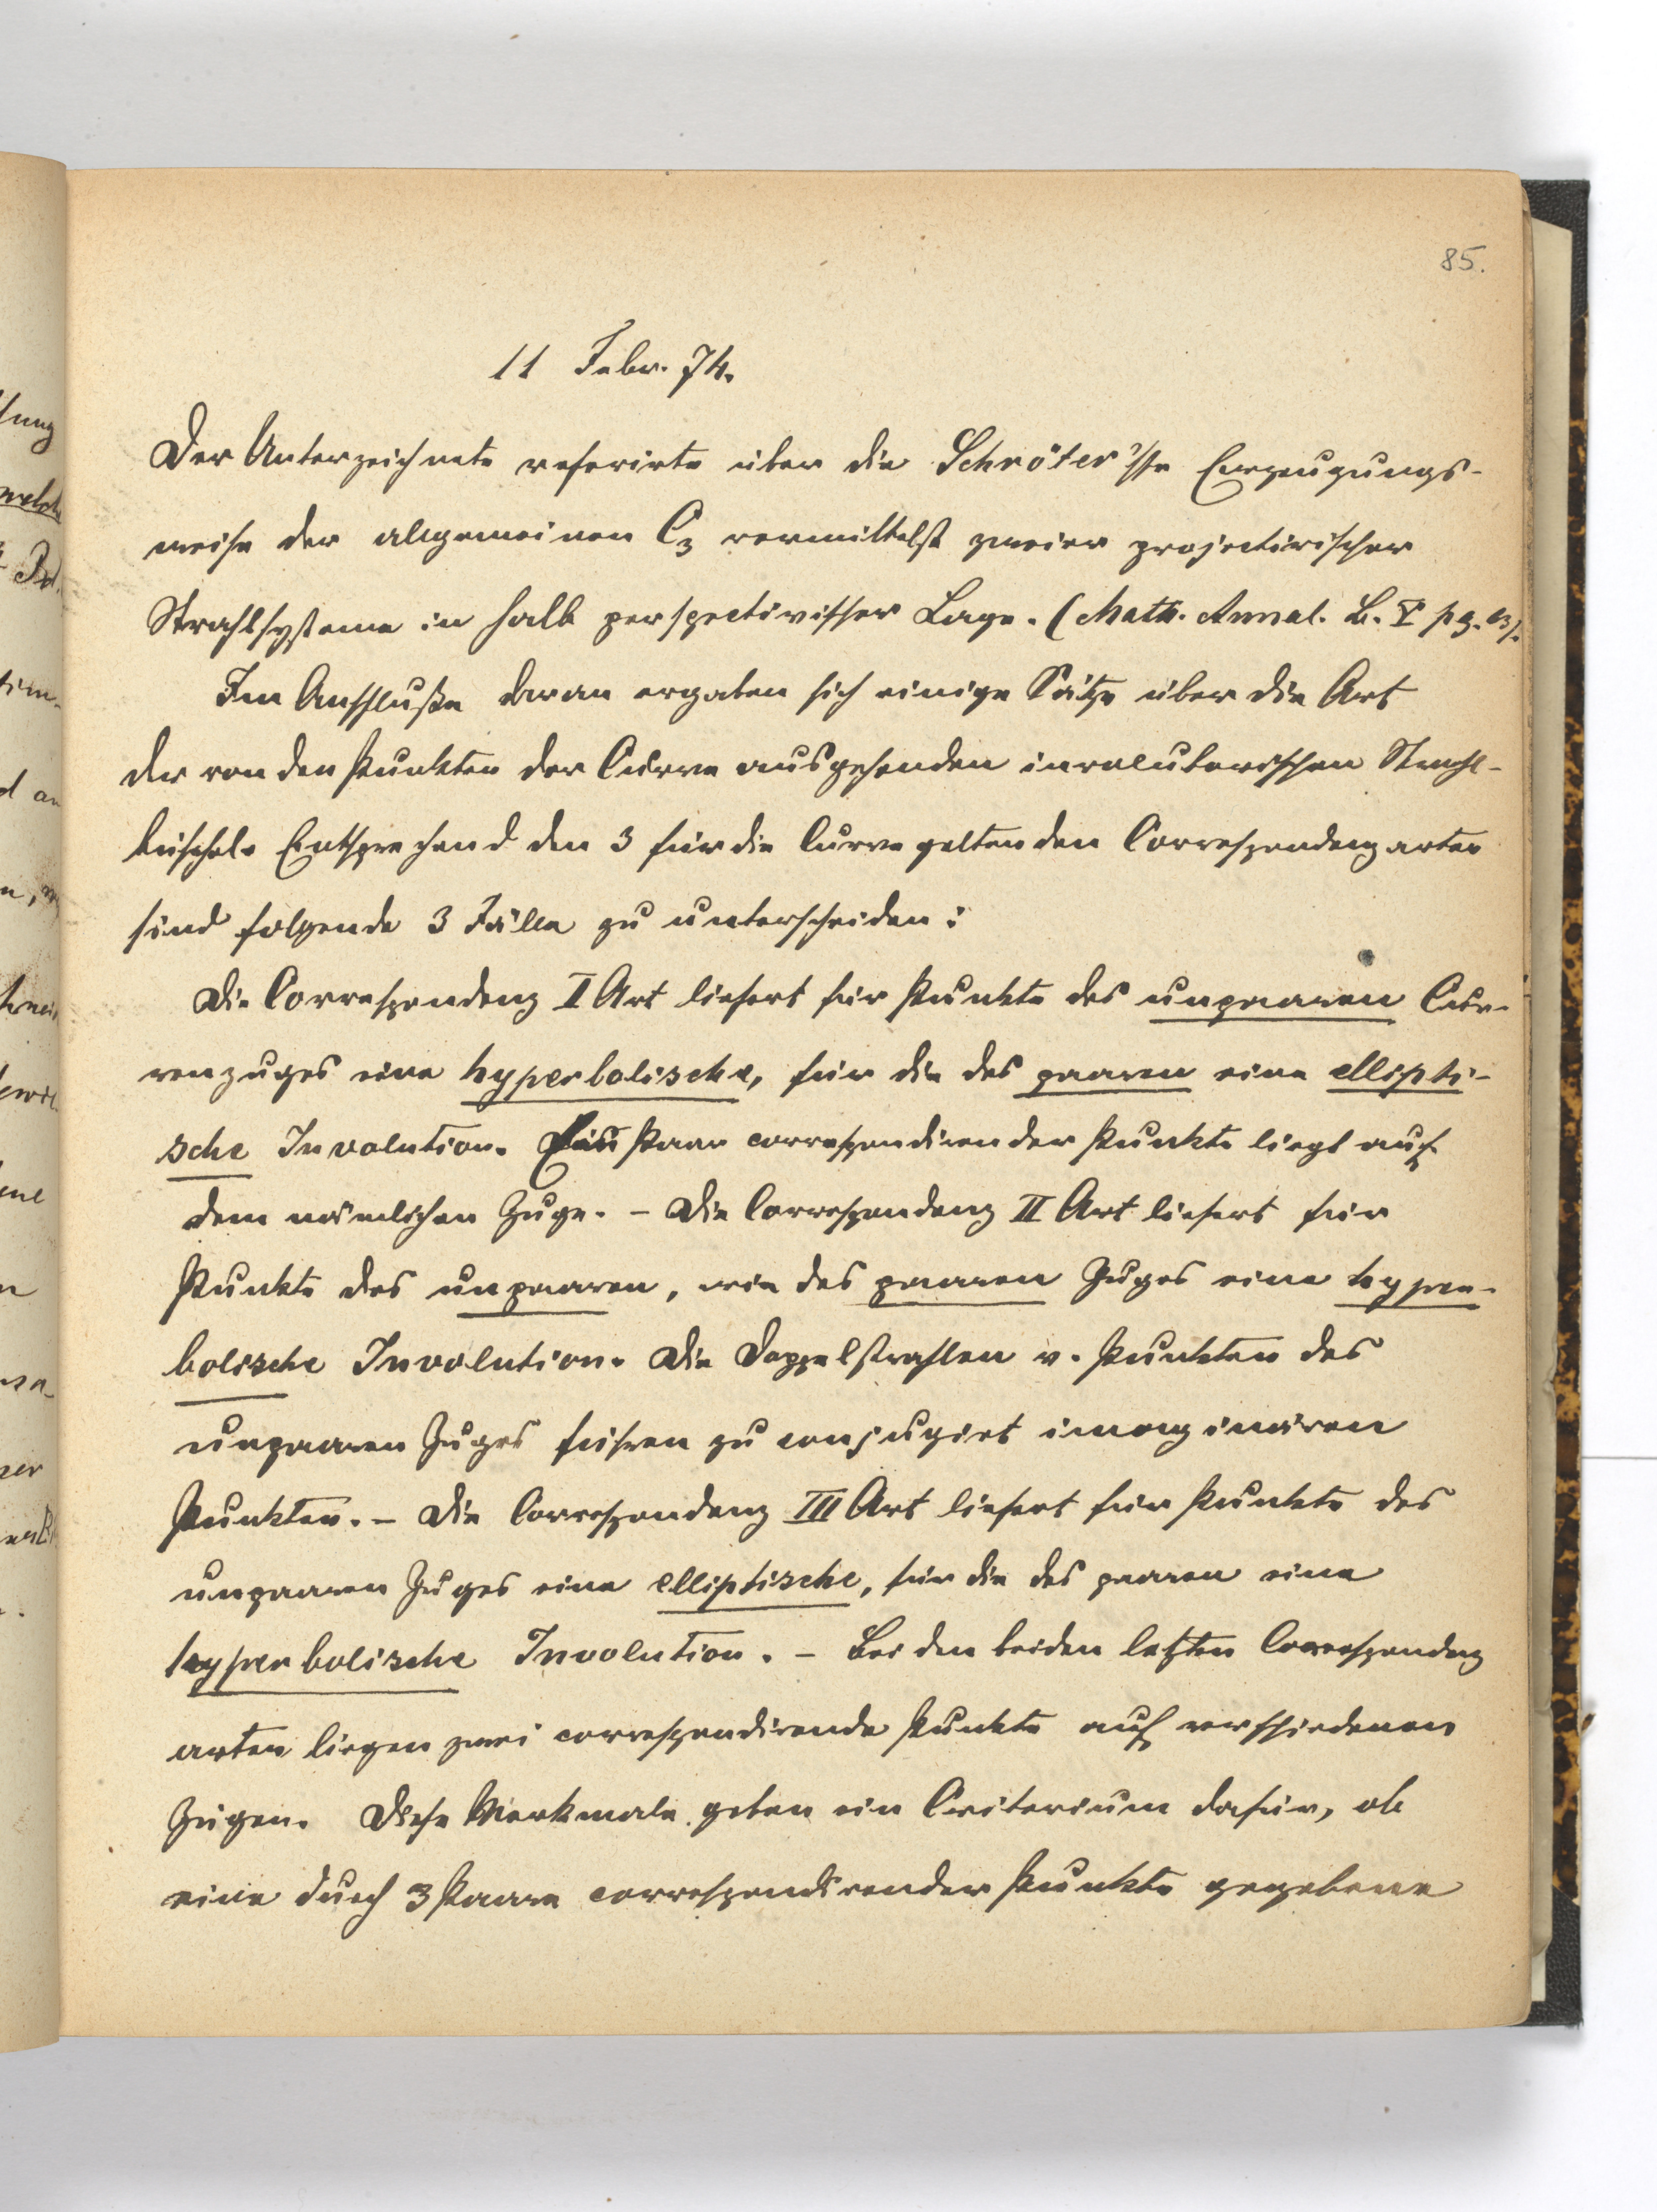 85.
11 Febr. 74.
Der Unterzeichnete referirte über die Schröter'sche Erzeugungs-
weise der allgemeinen C3 vermittelst zweier projectivischer
Strahlsysteme in halb perspectivischer Lage. (Math. Annal. B. V pg.
Im Anschluße daran ergaben sich einige Sätze über die Art
der von den Punkten der Curve ausgehenden involutorischen Strahl-
büschel. Entsprechend den 3 für die Curve geltenden Correspondenzarten
sind folgende 3 Fälle zu unterscheiden:
Die Correspondenz I Art liefert für Punkte des unpaaren Cur-
venzuges eine hyperbolische, für die des paaren eine ellipti-
sche Involution. Ein Paar correspondirender Punkte liegt auf
dem nämlichen Zuge. - Die Correspondenz II Art liefert für
Punkte des unpaaren, wie des paaren Zuges eine hyper-
bolische Involution. Die Doppelstrahlen v. Punkten des
unpaaren Zuges führen zu conjugirt imaginären
Punkten. - Die Correspondenz III Art liefert für Punkte des
unpaaren Zuges eine elliptische, für die des paaren eine
hyperbolische Involution. - Bei den beiden letzten Correspondenz
arten liegen zwei correspondirende Punkte auf verschiedenen
Zügen. Diese Merkmale geben ein Criterium dafür, ob
eine durch 3 Paare correspondirender Punkte gegebene